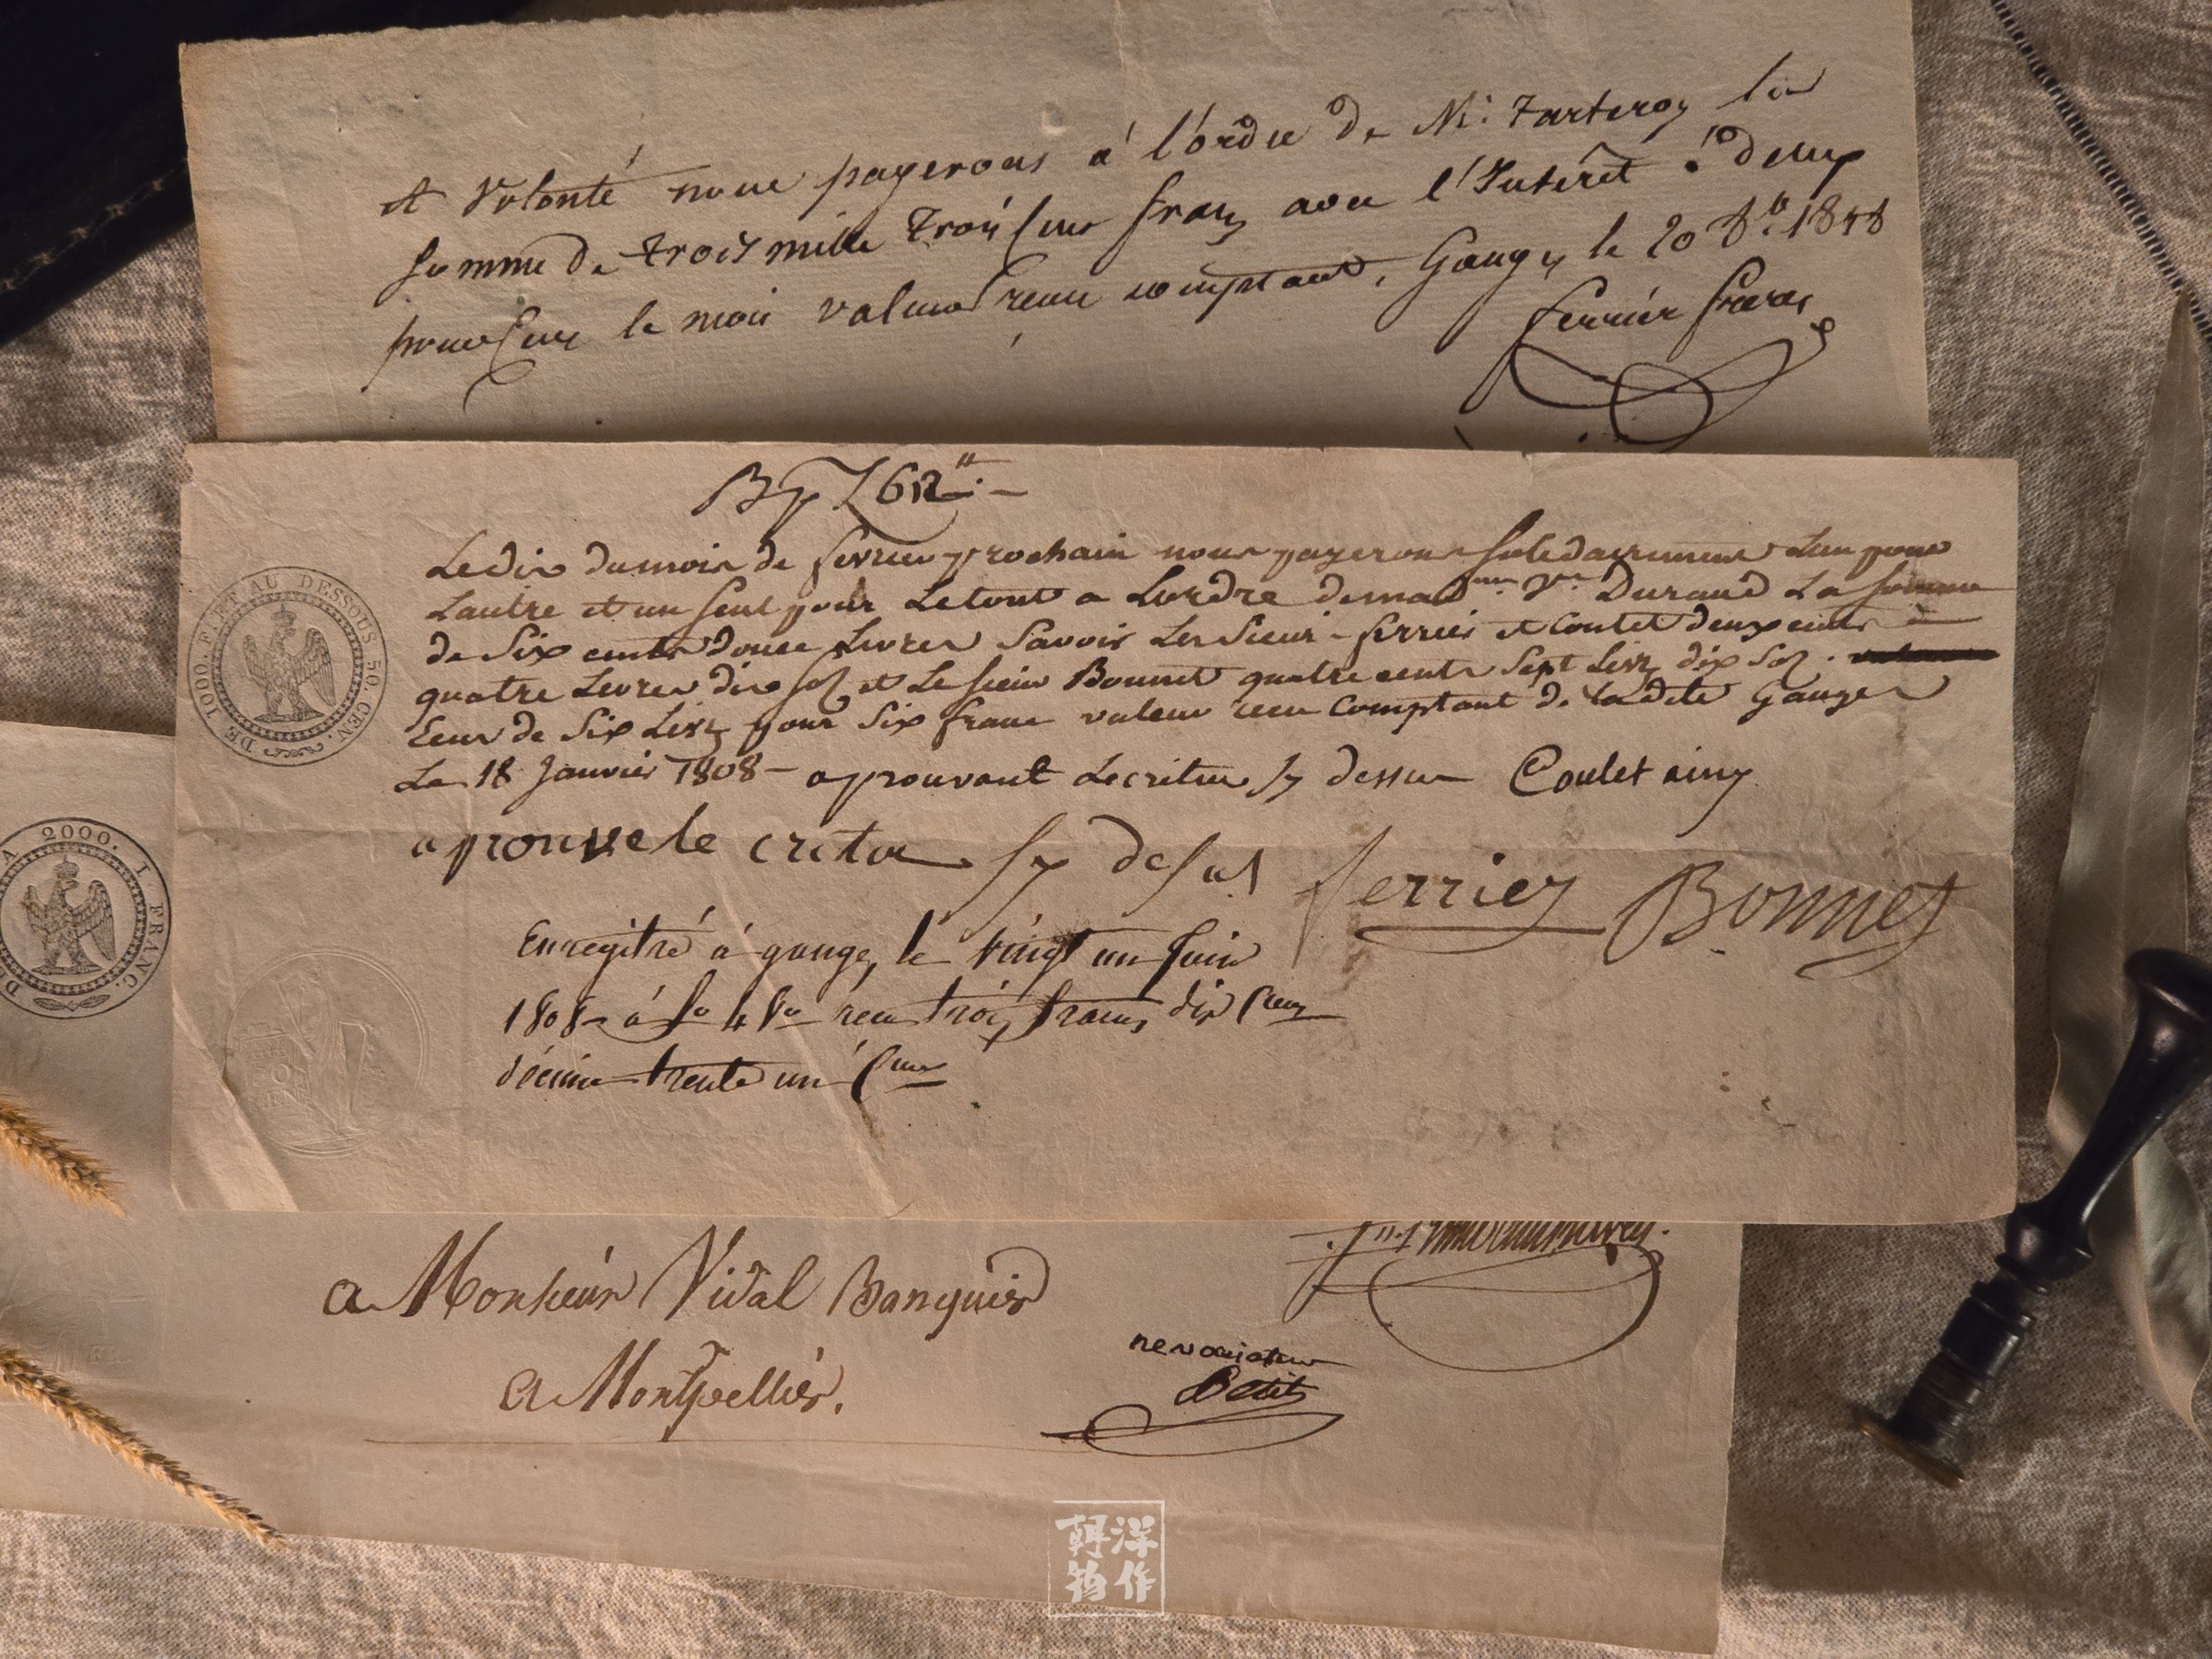 A Volonté nous payerons à l'ordre de Mr. Tarteron la
somme de trois mille trois Cens francs avec l'Intérêt à deux
pour Cent le mois valeur recue comptant, Ganges le 20 1818
ferrier freres
Bp L 612"
Le dix du mois de fevrier prochain nous payerons solidairement Lun pour
Lautre et un seul pour Letout a Lordre de mad.me V.ve Durand La somme
de Six cents douce Livres Savoir Les Sieur ferrier et Coulet deux cents
quatre Livres dix sol et Le sieur Bonnet quatre cents Sept Livz dix Sol.
Ecus de Six Livz pour Six franc valeur reçu Comptant de Ladite Ganges
Le 18 Janvier 1808 - aprouvant Lecriture sy dessur Coulet ainy
aprouve le critur sy desus ferrier Bonnet
Enregitré à ganges le vingt un Juin
1808 à fo 4 Vo reçu trois francs dix Cmes
décime trente un Cmes
DE 1000. F. ET AU DESSOUS 50. CEN.
DE A 2000. 1 FRANC.
a Monsieur Vidal Banquier
a Montpellier.
Petit
洋作
朝筠